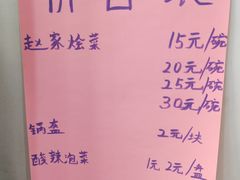 赵家烩菜 15元/碗
20元/碗
25元/碗
30元/碗
锅盔 2元/块
酸辣泡菜 1元 2元/盘